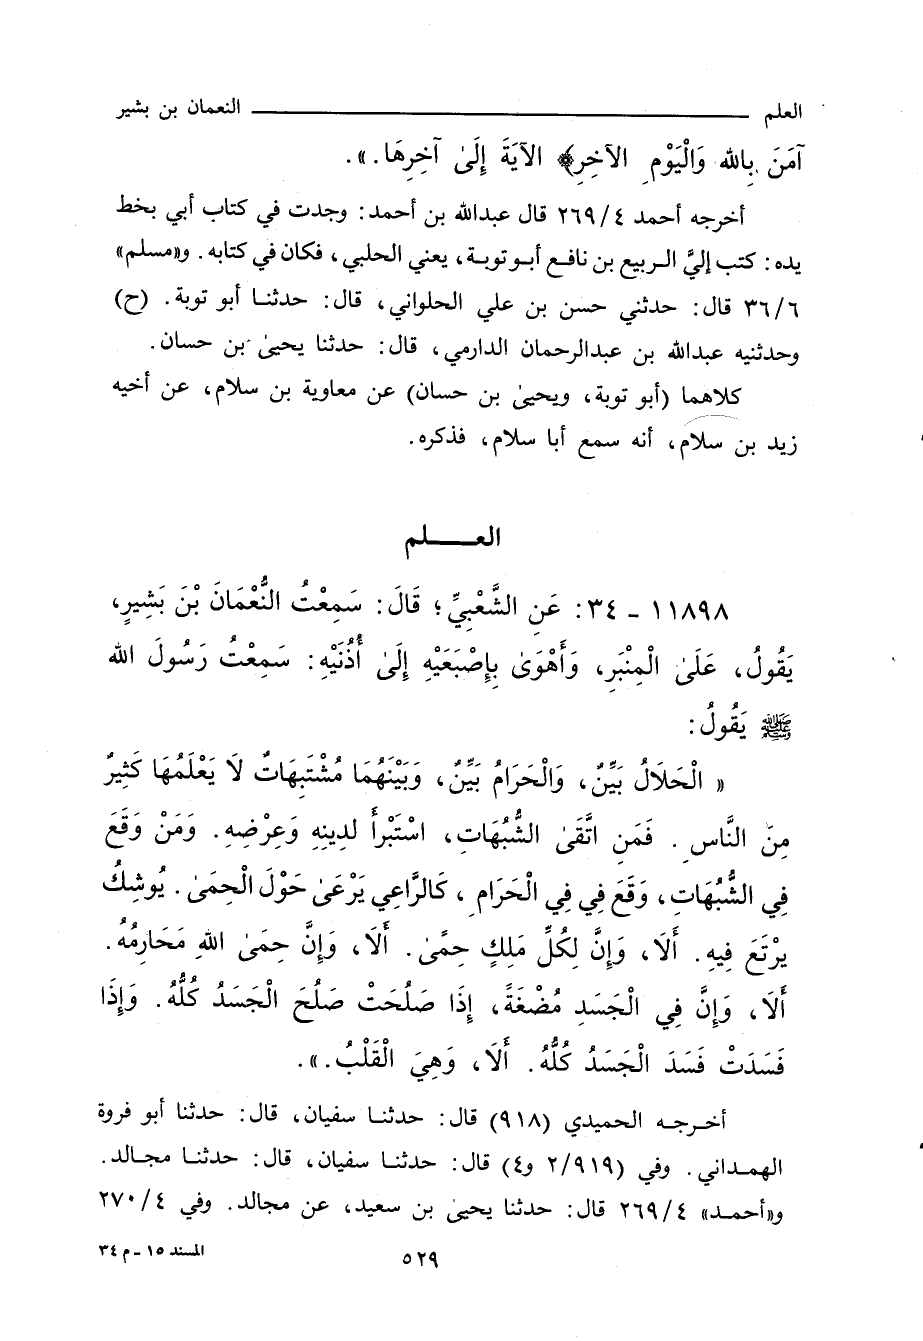 العلم ــــــــــــــــــــ النعمان بن بشير
آمَنَ بِالله وَالْيَوْمِ الآخِرِ﴾ الآيَةَ إِلَىٰ آخِرِهَا.».
أخرجه أحمد ٤/٢٦٩ قال عبدالله بن أحمد: وجدت في كتاب أبي بخط
يده: كتب إليَّ الربيع بن نافع أبو توبة، يعني الحلبي، فكان في كتابه. و«مسلم»
٦/٣٦ قال: حدثني حسن بن علي الحلواني، قال: حدثنا أبو توبة. (ح)
وحدثنيه عبدالله بن عبدالرحمان الدارمي، قال: حدثنا يحيىٰ بن حسان.
كلاهما (أبو توبة، ويحيىٰ بن حسان) عن معاوية بن سلام، عن أخيه
زيد بن سلام، أنه سمع أبا سلام، فذكره.
العـــلم
١١٨٩٨ ـ ٣٤: عَنِ الشَّعْبِيِّ؛ قَالَ: سَمِعْتُ النُّعْمَانَ بْنَ بَشِيرٍ،
يَقُولُ، عَلَىٰ الْمِنْبَرِ، وَأَهْوَىٰ بِإِصْبَعَيْهِ إِلَىٰ أُذُنَيْهِ: سَمِعْتُ رَسُولَ الله
ﷺ يَقُولُ:
« الْحَلَالُ بَيِّنٌ، وَالْحَرَامُ بَيِّنٌ، وَبَيْنَهُمَا مُشْتَبِهَاتٌ لَا يَعْلَمُهَا كَثِيرٌ
مِنَ النَّاسِ. فَمَنِ اتَّقَىٰ الشُّبُهَاتِ، اسْتَبْرَأَ لدِينِهِ وَعِرْضِهِ. وَمَنْ وَقَعَ
فِي الشُّبُهَاتِ، وَقَعَ فِي فِي الْحَرَامِ، كَالرَّاعِي يَرْعَىٰ حَوْلَ الْحِمَىٰ. يُوشِكُ
يرْتَعَ فِيهِ. أَلَا، وَإِنَّ لِكُلِّ مَلِكٍ حِمًىٰ. أَلَا، وَإِنَّ حِمَىٰ اللهِ مَحَارِمُهُ.
أَلَا، وَإِنَّ فِي الْجَسَدِ مُضْغَةً، إِذَا صَلُحَتْ صَلُحَ الْجَسَدُ كُلُّهُ. وَإِذَا
فَسَدَتْ فَسَدَ الْجَسَدُ كُلُّهُ. أَلَا، وَهِيَ الْقَلْبُ.».
أخرجه الحميدي (٩١٨) قال: حدثنا سفيان، قال: حدثنا أبو فروة
الهمداني. وفي (٢/٩١٩ و٤) قال: حدثنا سفيان، قال: حدثنا مجالد.
و«أحمد» ٤/٢٦٩ قال: حدثنا يحيىٰ بن سعيد، عن مجالد. وفي ٤/٢٧٠
٥٢٩ المسند ١٥ ـ م ٣٤